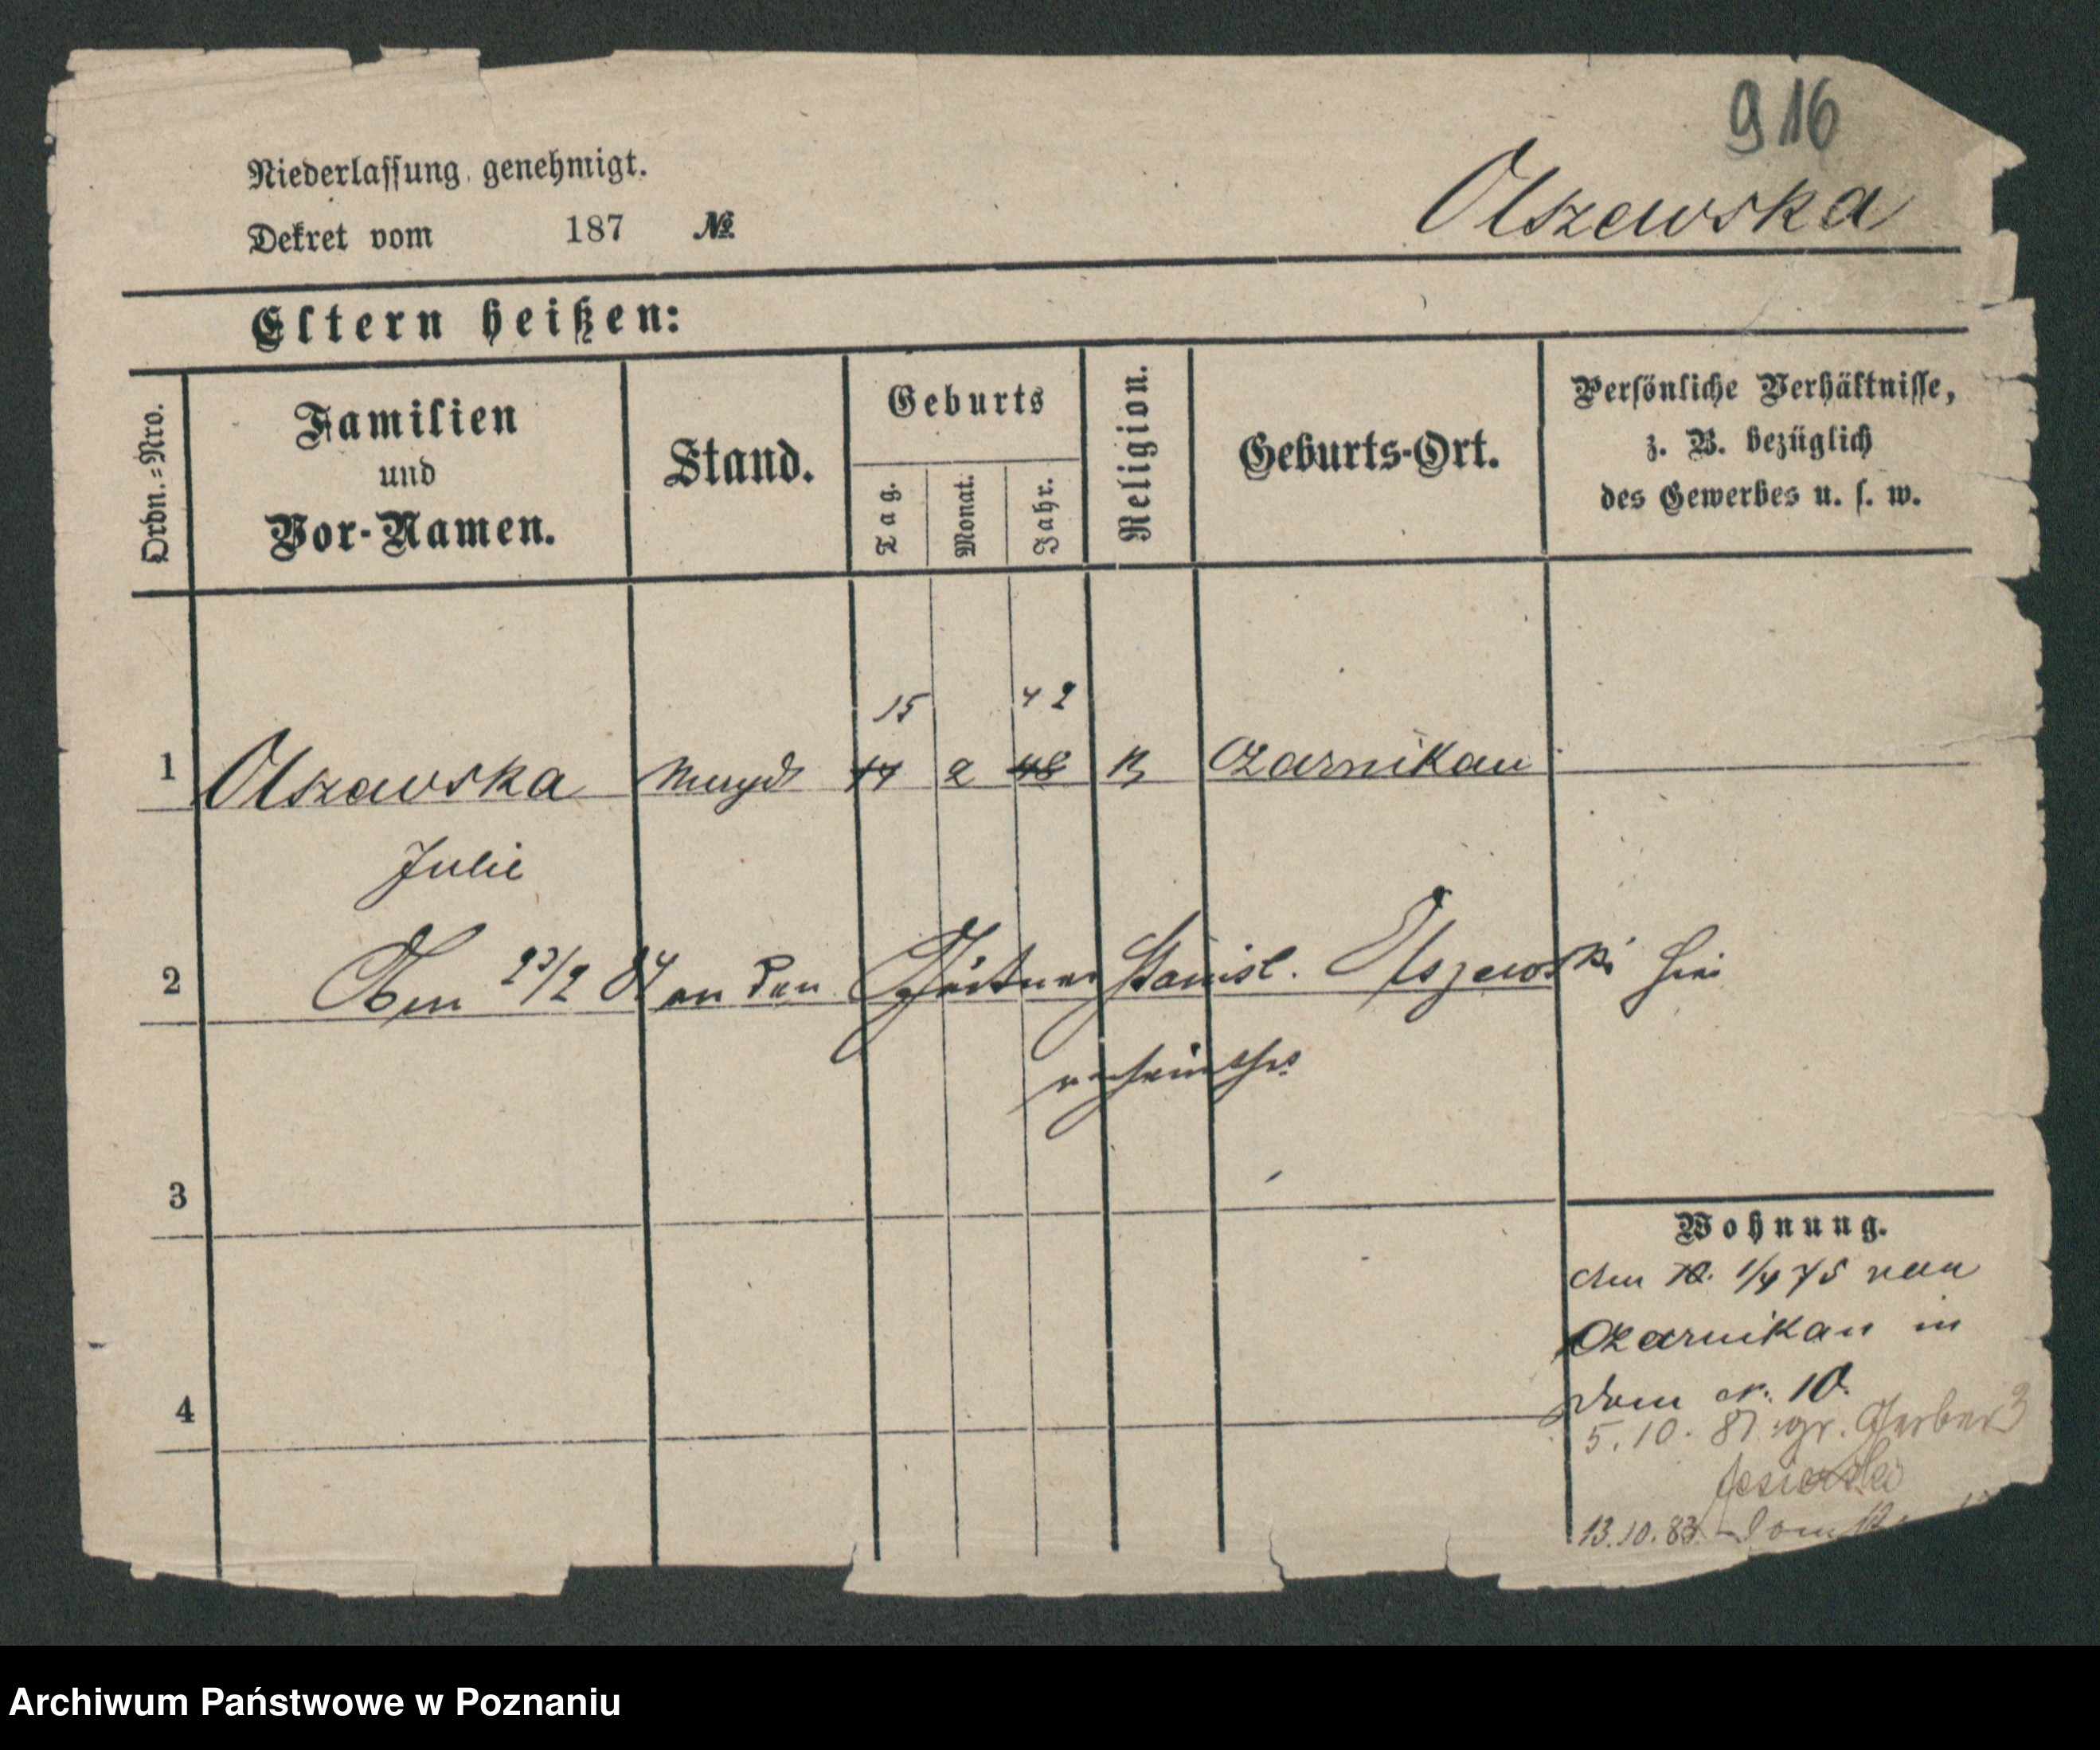 916
Niederlassung genehmigt.
Olszewska
Dekret vom 187 №
Eltern heißen:
Ordn.=Nro.
Familien
und
Vor-Namen.
Stand.
Geburts
Tag.
Monat.
Jahr.
Religion.
Geburts-Ort.
Persönliche Verhältnisse,
z. B. bezüglich
des Gewerbes u. s. w.
15 42
1 Olszewska Magd 2 48 Czarnikau
Julie
2 Am 23/2 84 an den Gärtner Stanisl. Olszewski hier
verheirathet
3
Wohnung.
den 1/4 75 von
Czarnikau in
Dom N. 10.
4
5.10. 81 gr. Gerber 3
13.10.83. Dom
Archiwum Państwowe w Poznaniu